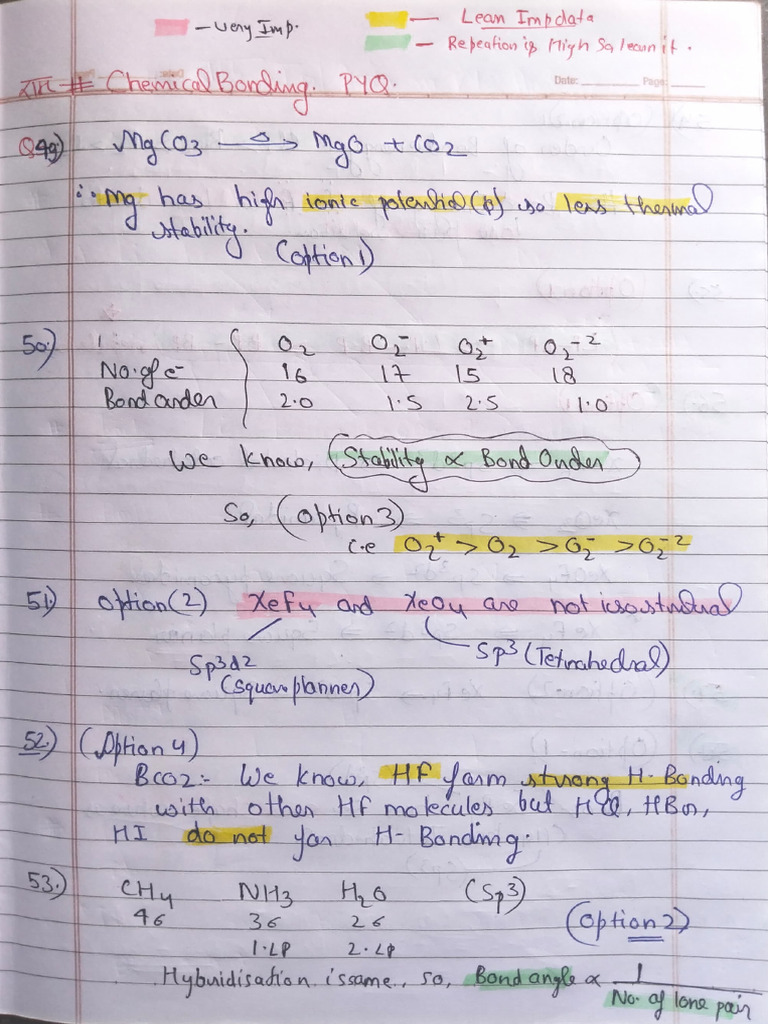 — Very Imp.
— Learn Imp data
— Repeation is High So learn it.
Date: Page:
# Chemical Bonding. PYQ.
Q49) MgCO3 —Δ→ MgO + CO2
∴ Mg has high ionic potential(p) so less thermal
stability.
(option 1)
50.) O2 O2⁻ O2⁺ O2⁻²
No. of e⁻ 16 17 15 18
Bond order 2.0 1.5 2.5 1.0
We know, Stability ∝ Bond Order
So, (Option 3)
i.e O2⁺ > O2 > O2⁻ > O2⁻²
51.) option(2) XeF4 and XeO4 are not isostrutural
Sp3d2 Sp3 (Tetrahedral)
(Square planner)
52.) (Option 4)
BcO2:- We know, HF form strong H-Bonding
with other HF molecules but HCl, HBr,
HI do not for H-Bonding.
53.) CH4 NH3 H2O (Sp3)
4σ 3σ 2σ (option 2)
1.LP 2.LP
Hybridisation is same, so, Bond angle ∝ 1
No. of lone pair